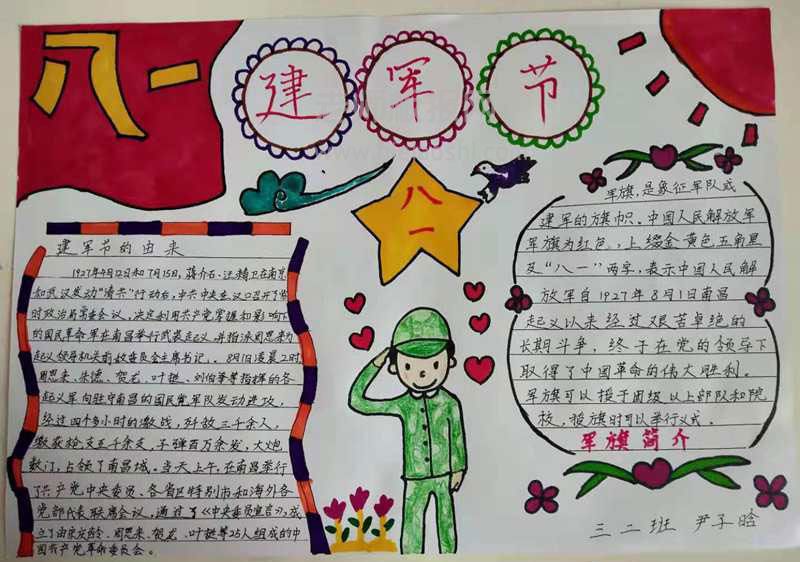 八一
建军节
八一
建军节的由来
1927年4月12日和7月15日,蒋介石、汪精卫在南京
和武汉发动“清共”行动后,中共中央在汉口召开了临
时政治局常委会议,决定利用共产党掌握和影响下
的国民革命军在南昌举行武装起义,并指派周恩来为
起义领导机关前敌委员会主席书记。8月1日凌晨2时
周恩来、朱德、贺龙、叶挺、刘伯承等指挥的各
起义军向驻守南昌的国民党军队发动进攻,
经过四个多小时的激战,歼敌三千余人,
缴获枪支五千余支,子弹百万余发,大炮
数门,占领了南昌城。当天上午,在南昌举行
了共产党中央委员、各省区特别市和海外各
党部代表联席会议,通过了《中央委员宣言》,成
立了由宋庆龄、周恩来、贺龙、叶挺等25人组成的中
国共产党革命委员会。
军旗,是象征军队或
建军的旗帜。中国人民解放军
军旗为红色,上缀金黄色五角星
及“八一”两字,表示中国人民解
放军自1927年8月1日南昌
起义以来经过艰苦卓绝的
长期斗争,终于在党的领导下
取得了中国革命的伟大胜利。
军旗可以授予团级以上部队和院
校,授旗时可以举行仪式。
军旗简介
三二班 尹子晗